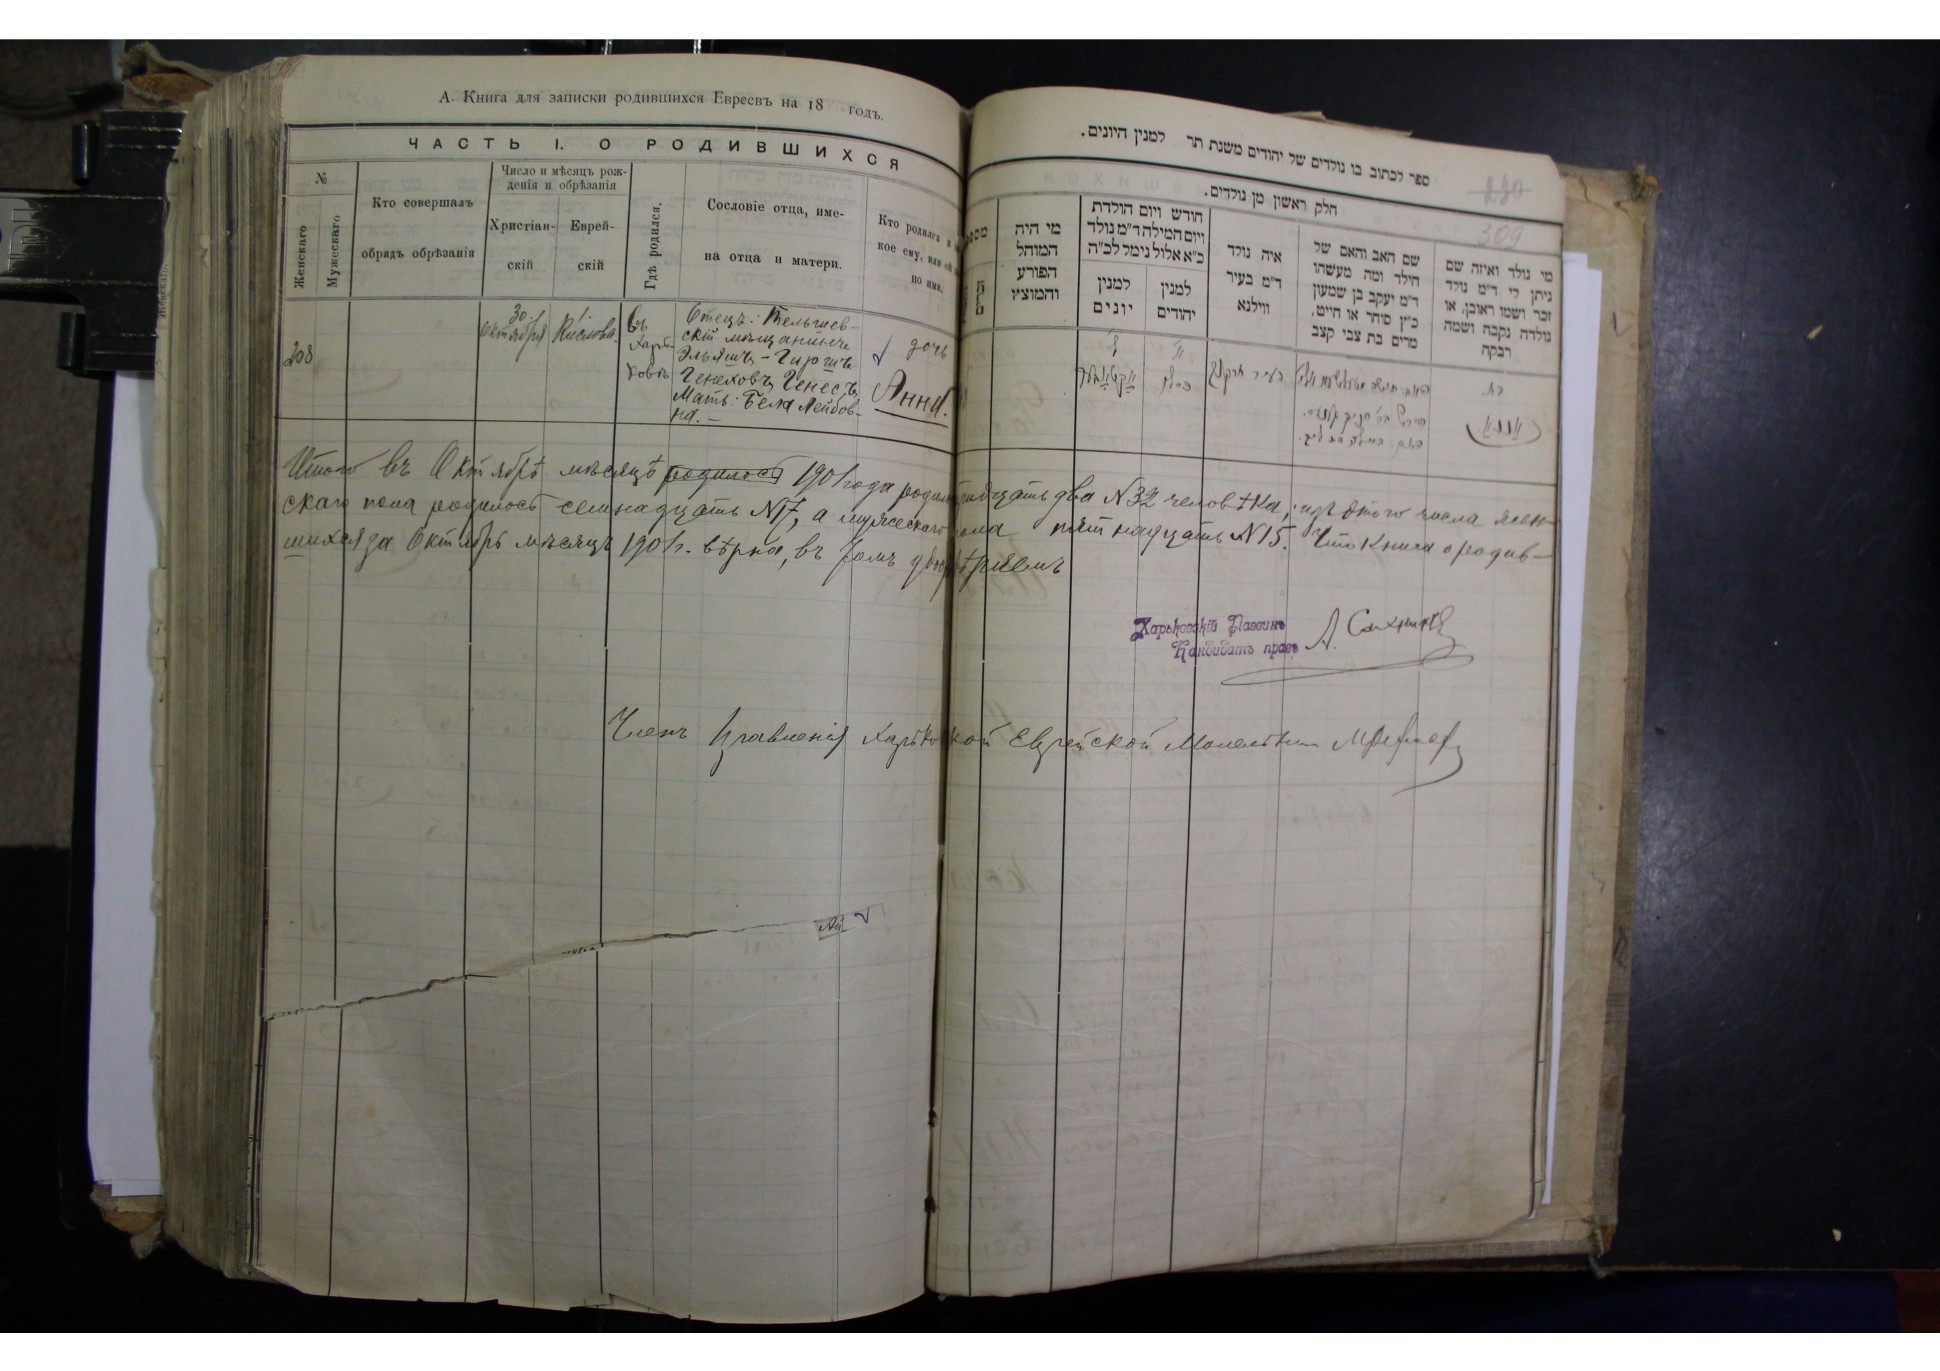 А. Книга для записки родившихся Евреевъ на 18 годъ.
ЧАСТЬ I. О РОДИВШИХСЯ
№
Женскаго
Мужескаго
Кто совершалъ
обрядъ обрѣзанія
Число и мѣсяцъ рож-
денія и обрѣзанія
Христіан-
скій
Еврей-
скій
Гдѣ родился.
Сословіе отца, име-
на отца и матери.
Кто родился и
кое ему, или ей
но имя.
208
30.
Октября
1.
Кислова.
Въ
Харь-
ковѣ
Отецъ: Тельшев-
скій мѣщанинъ
Эльяшъ-Гиршъ
Генеховъ Генесъ,
Мать: Бела Лейбов-
на.
дочь
Анна.
ספר לכתוב בו נולדים של יהודים משנת תר למנין היונים.
חלק ראשון מן נולדים.
230
309
מי היה
המוהל
הפורע
והמוציץ
חודש ויום הולדת
ויום המילה ד"מ נולד
כ"א אלול נימל לכ"ה
למנין
יונים
למנין
יהודים
איה נולד
ד"מ בעיר
ווילנא
שם האב והאם של
הילד ומה מעשהו
ד"מ יעקב בן שמעון
כ"ץ סוחר או חייט,
מרים בת צבי קצב
מי נולד ואיזה שם
ניתן לו ד"מ נולד
זכר ושמו ראובן, או
נולדה נקבה ושמה
רבקה
בת
Итого въ Октябрѣ мѣсяцѣ родилось 1901 года родилось тридцать два №32 человѣка; изъ этого числа жен-
скаго пола родилось семнадцать №17, а мужескаго пола пятнадцать №15. Что книга о родив-
шихся за Октябрь мѣсяцъ 1901г. вѣрна, въ томъ удостовѣряемъ
Харьковскій Раввинъ
Кандидатъ правъ
А.
Членъ Правленія Харьковской Еврейской Молельни